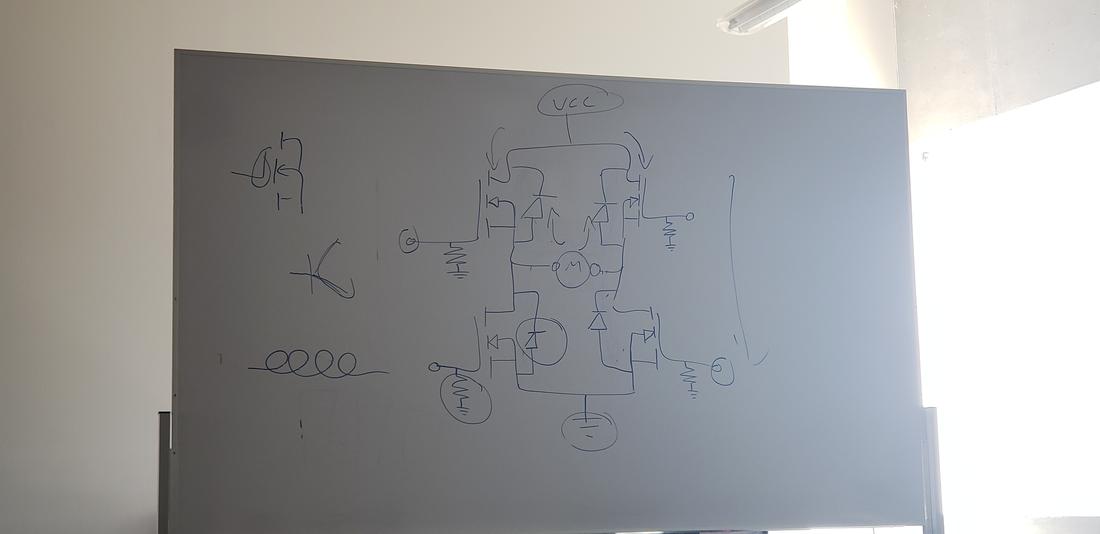 VCC
M